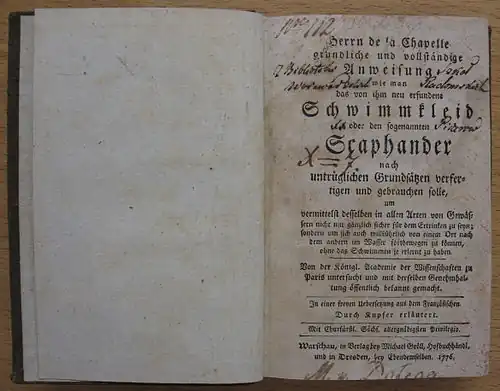 Nro 112
Herrn de la Chapelle
gründliche und vollständige
Anweisung
wie man
das von ihm neu erfundene
Schwimmkleid
oder den sogenannten
Scaphander
nach
untrüglichen Grundsätzen verfer-
tigen und gebrauchen solle,
um
vermittelst desselben in allen Arten von Gewäs-
sern nicht nur gänzlich sicher für dem Ertrinken zu seyn;
sondern um sich auch willkührlich von einem Ort nach
dem andern im Wasser fortbewegen zu können,
ohne das Schwimmen je erlernt zu haben.
Von der Königl. Academie der Wissenschaften zu
Paris untersucht und mit derselben Genehmhal-
tung öffentlich bekannt gemacht.
In einer freyen Uebersetzung aus dem Französischen.
Durch Kupfer erläutert.
Mit Churfürstl. Sächs. allergnädigsten Privilegio.
Warschau, in Verlag bey Michael Gröll, Hofbuchhändl.
und in Dresden, bey Ebendemselben. 1776.